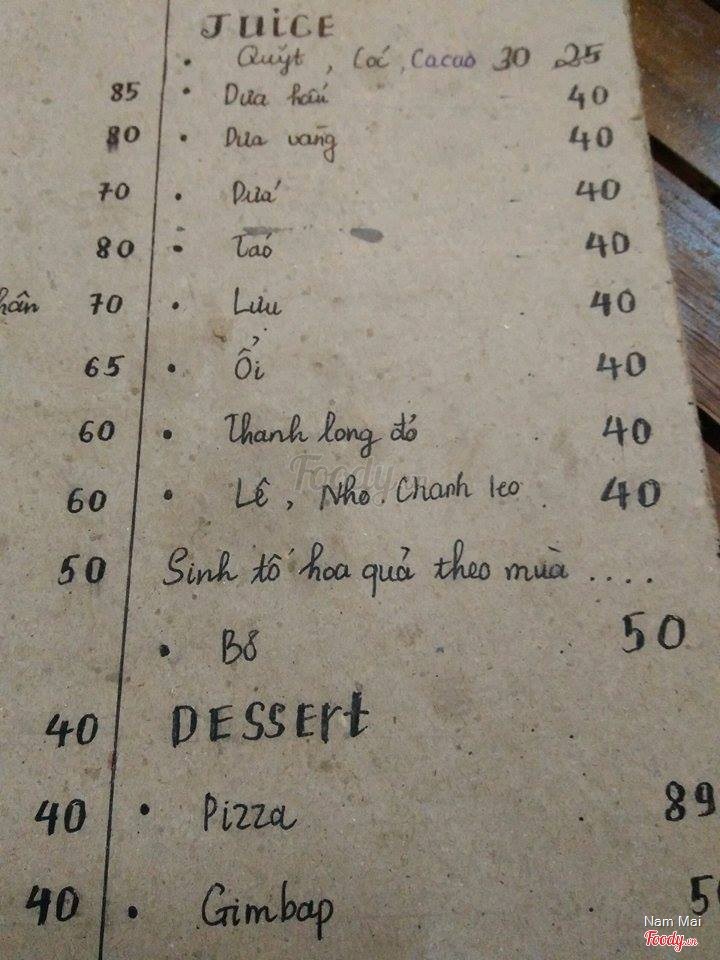 JUICE
• Quýt, Cóc, Cacao 30 25
85 • Dưa hấu 40
80 • Dưa vàng 40
70 • Dứa 40
80 • Táo 40
hân 70 • Lựu 40
65 • Ổi 40
60 • Thanh long đỏ 40
60 • Lê, Nho, Chanh leo 40
50 Sinh tố hoa quả theo mùa ....
• Bơ 50
40 DESSErt
40 • Pizza 89
40 • Gimbap
Foody
Nam Mai
Foody.vn